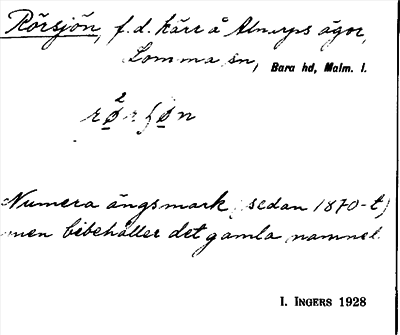 Rörsjön, f.d. kärr å Alnarps ägor,
Lomma sn, Bara hd, Malm. l.
2
rørʃøn
Numera ängsmark (sedan 1870-t)
men bibehåller det gamla namnet.
I. INGERS 1928